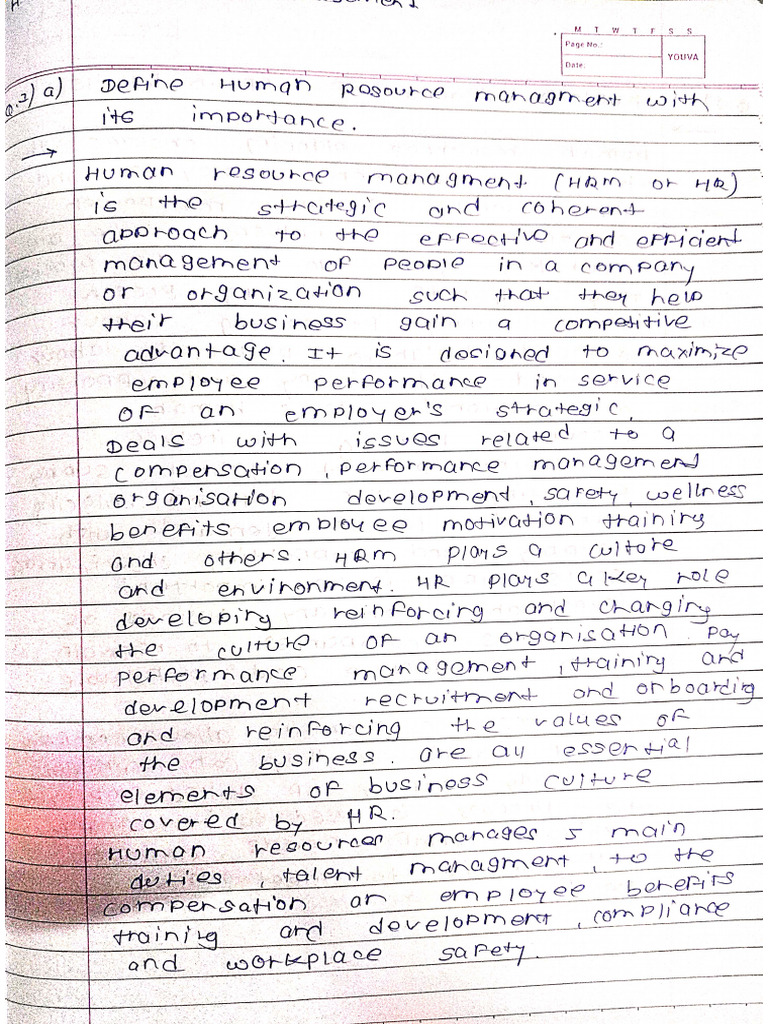 M T W T F S S
Page No.:
Date:
YOUVA
Q.2) a) Define Human Resource managment with
its importance.
→
Human resource managment (HRM or HR)
is the strategic and coherent
approach to the effective and efficient
management of people in a company
or organization such that they help
their business gain a competitive
advantage. It is designed to maximize
employee performance in service
of an employer's strategic.
Deals with issues related to a
compensation, performance management
organisation development, safety, wellness
benefits employee motivation training
and others. HRM plays a culture
and environment. HR plays a key role
developing reinforcing and changing
the culture of an organisation. Pay
performance management, training and
development recruitment and onboarding
and reinforcing the values of
the business. are all essential
elements of business culture
covered by HR.
Human resources manages 5 main
duties, talent managment, to the
compensation an employee benefits
training and development, compliance
and workplace safety.